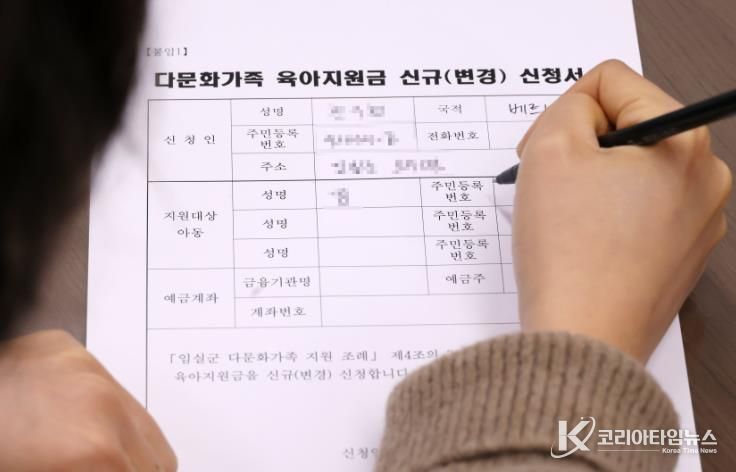 [붙임1]
다문화가족 육아지원금 신규(변경) 신청서
신 청 인 성명 국적
주민등록번호 전화번호
주소
지원대상 아동 성명 주민등록번호
성명 주민등록번호
성명 주민등록번호
예금계좌 금융기관명 예금주
계좌번호
「임실군 다문화가족 지원 조례」 제4조의
육아지원금을 신규(변경) 신청합니다
신청인
코리아타임뉴스
Korea Time News